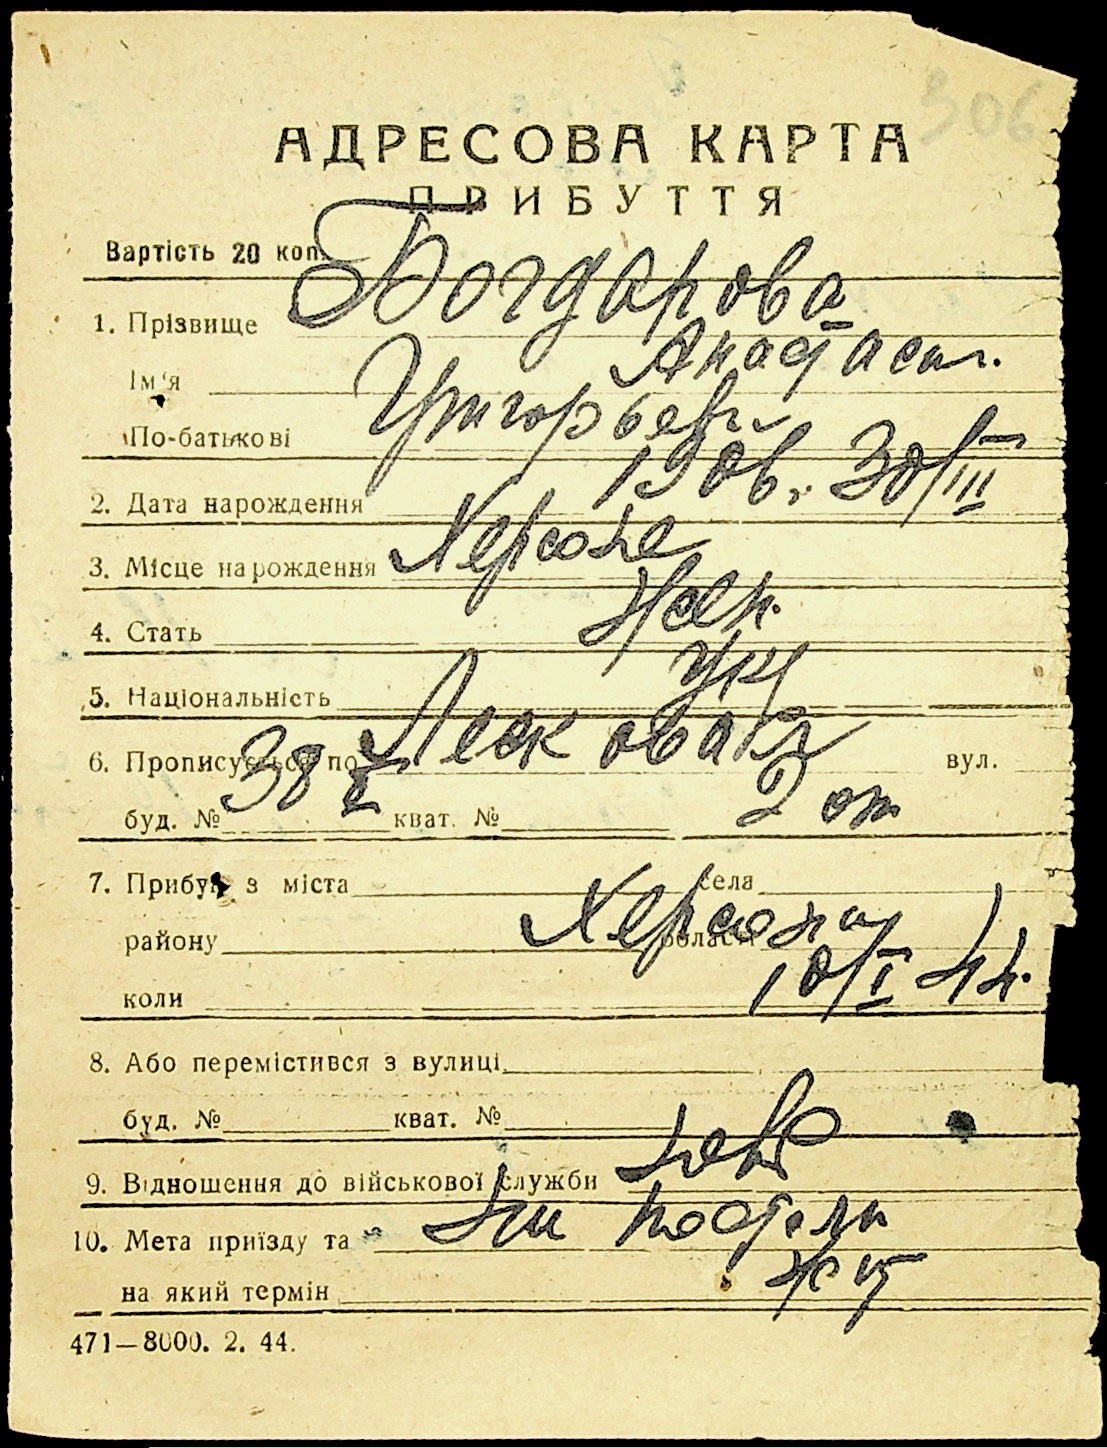 306
АДРЕСОВА КАРТА
ПРИБУТТЯ
Вартість 20 коп.
1. Прізвище Богдарова
Ім'я Анастасия.
По-батькові Григорьев
2. Дата нарождення 1906. 30/III
3. Місце нарождення Херсоне
4. Стать жен.
5. Національність укр
6. Прописується по вул.
буд. № 38 кват. №
7. Прибув з міста села
району Херсона області
коли 10/I 44.
8. Або перемістився з вулиці
буд. № кват. №
9. Відношення до військової служби
10. Мета приїзду та
на який термін жит
471—8000. 2. 44.